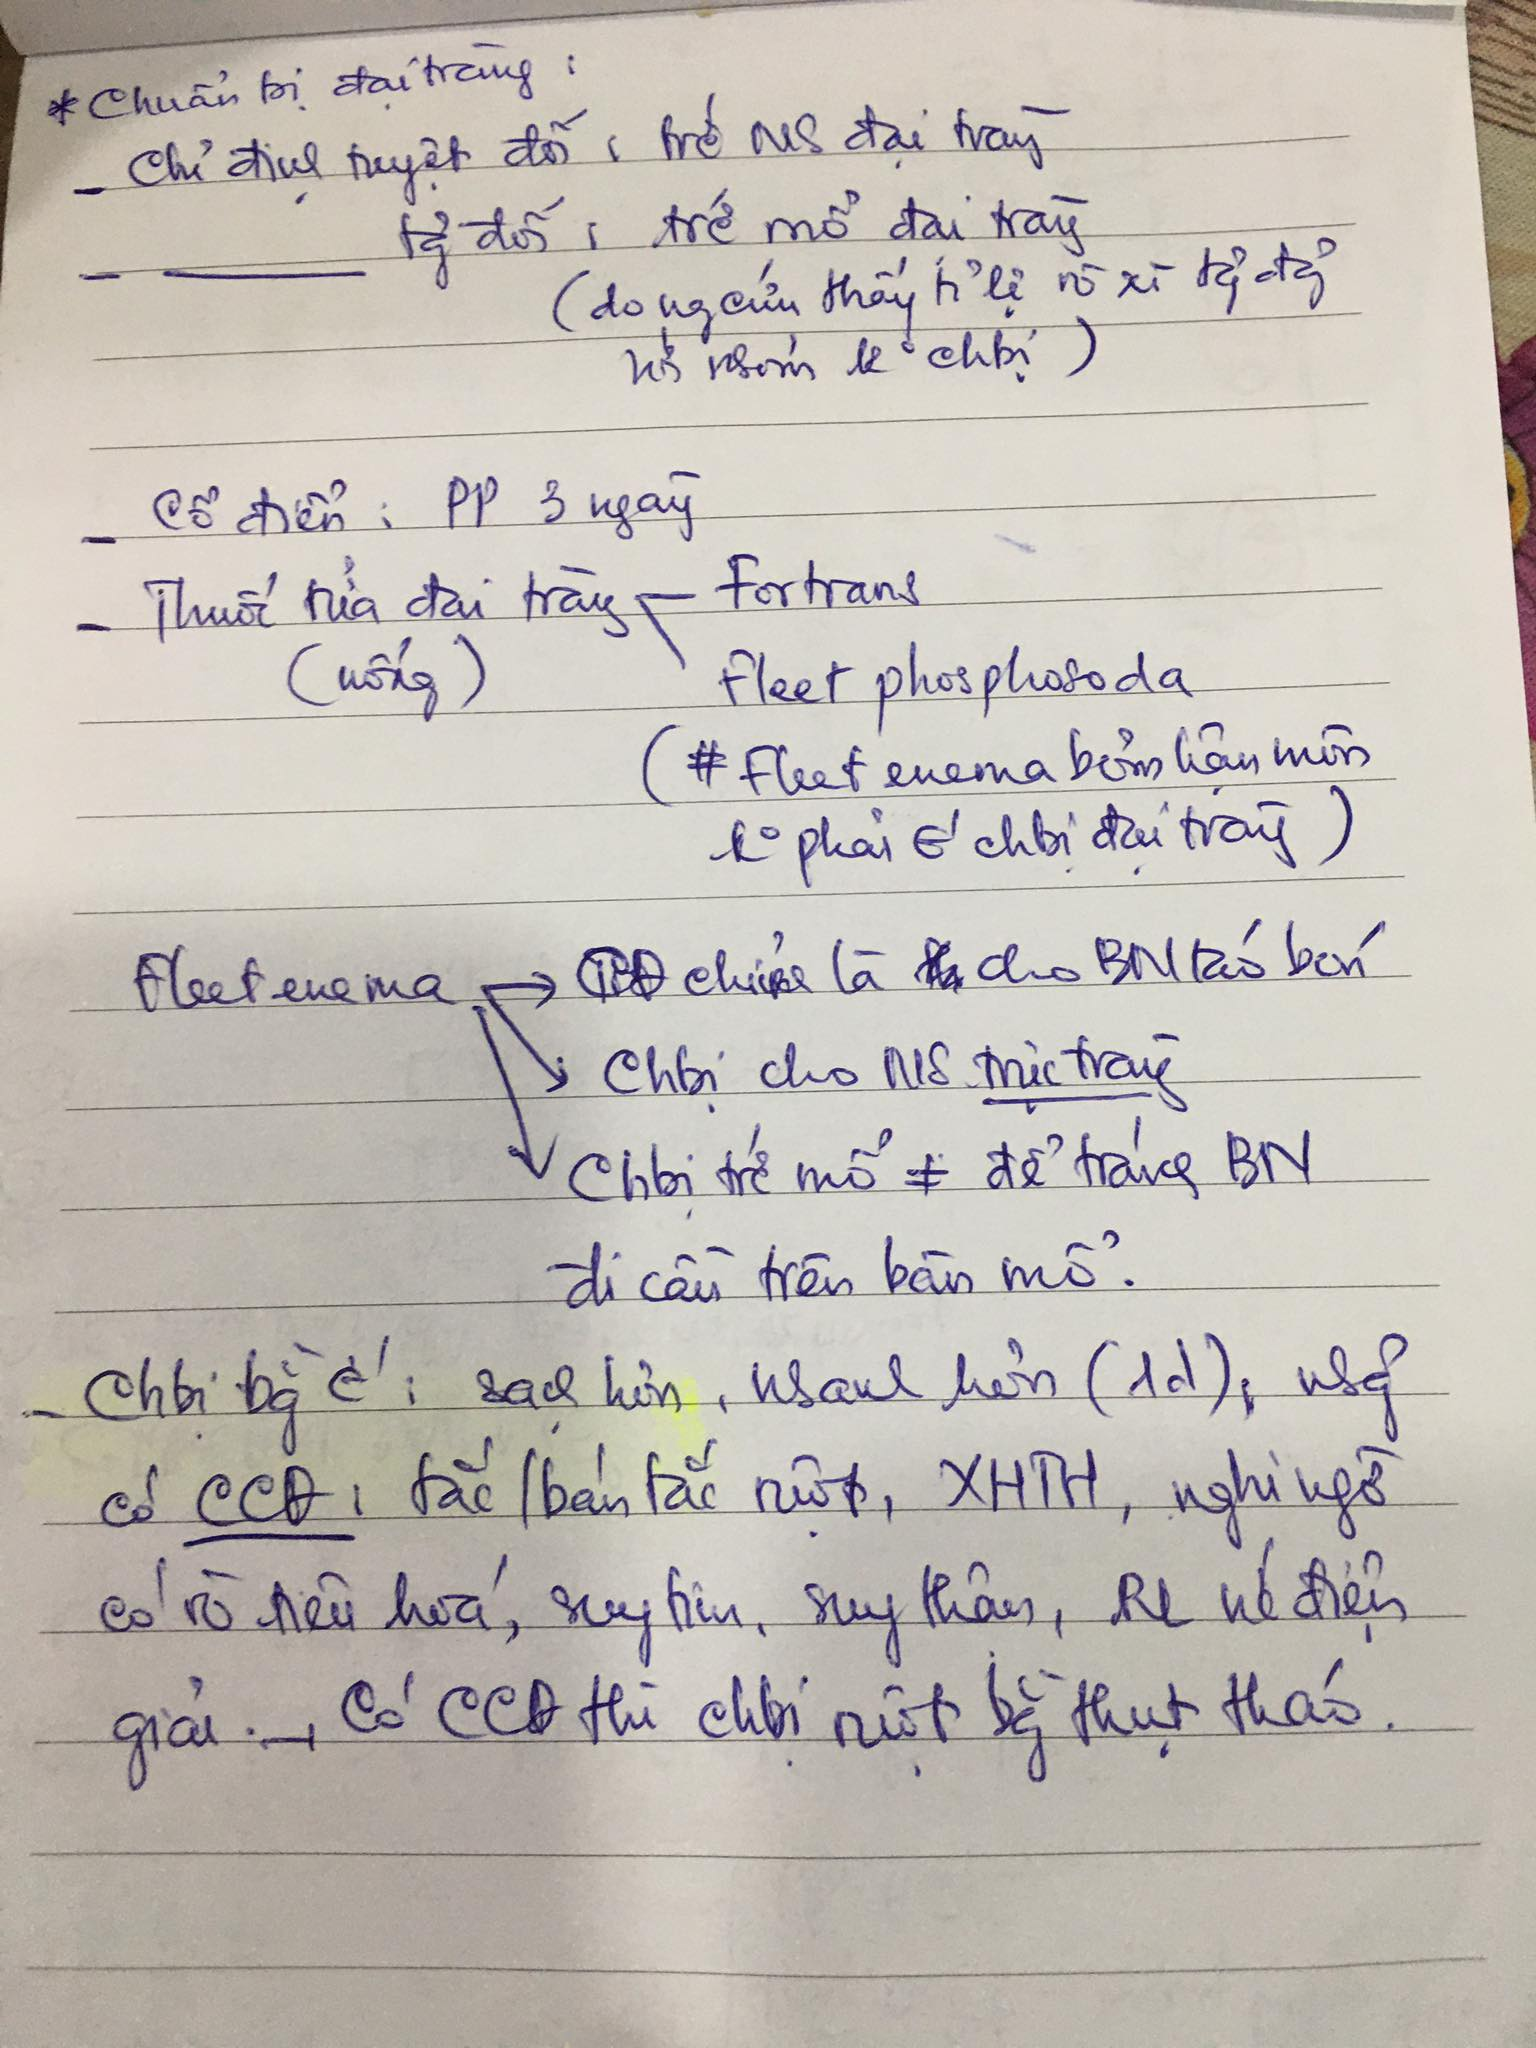 * Chuẩn bị đại tràng :
- Chỉ định tuyệt đối : trc' NS đại tràng
- ——— tg đối : trc' mổ đại tràng
(do ng cứu thấy tỉ lệ rò xì tg đg
với nhóm k° chbị)
- Cổ điển : PP 3 ngày
- Thuốc rửa đại tràng — Fortrans
(uống) Fleet phosphosoda
(# Fleet enema bơm hậu môn
k° phải để chbị đại tràng)
Fleet enema → CĐ chính là cho BN táo bón
Chbị cho NS trực tràng
Chbị trc' mổ ≠ để tránh BN
đi cầu trên bàn mổ.
- Chbị bg : sạch hơn, nhanh hơn (1d), nhg
có CCĐ : tắc/bán tắc ruột, XHTH, nghi ngờ
có rò tiêu hoá, suy tim, suy thận, RL nc' điện
giải. → Có CCĐ thì chbị ruột bg thụt tháo.